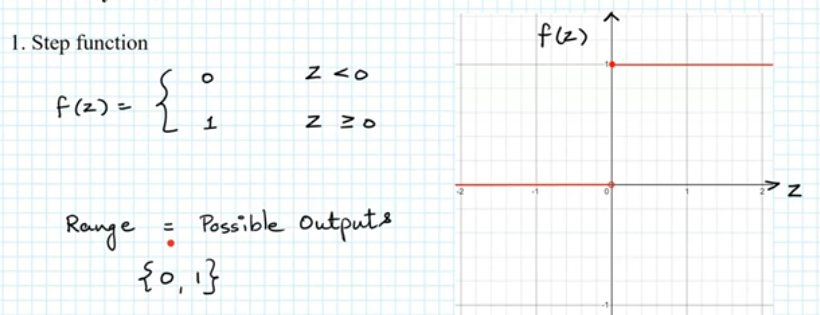 1. Step function
f(z) = { 0 z < 0
1 z ≥ 0
Range = Possible Outputs
{0, 1}
f(z)
1
-2 -1 0 1 2 z
-1